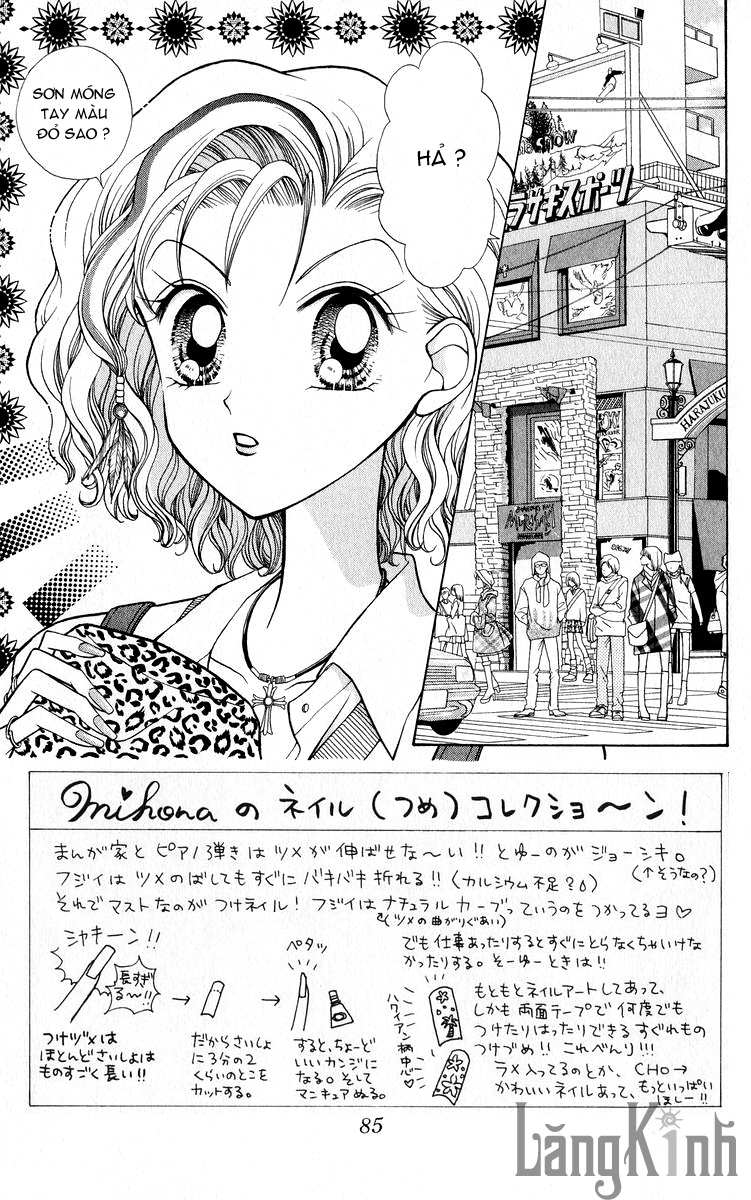 SƠN MÓNG
TAY MÀU
ĐỎ SAO ?
HẢ ?
SNOW
ラサキスポーツ
HARAJUKU
mihonaのネイル(つめ)コレクショ〜ン!
まんが家とピアノ弾きはツメが伸ばせな〜い!!とゆーのがジョーシキ。
(↑そうなの?)
フジイはツメのばしてもすぐにバキバキ折れる!!(カルシウム不足?)
それでマストなのがつけネイル!フジイはナチュラルカーブっていうのをつかってるヨ♡
(ツメの曲がりぐあい)
シャキーン!!
長すぎ
る〜!!
つけヅメは
ほとんどさいしょは
ものすごく長い!!
→
だからさいしょ
に3分の2
くらいのとこを
カットする。
→
ペタッ
すると、ちょーど
いいカンジに
なる。そして
マニキュアぬる。
でも仕事あったりするとすぐにとらなくちゃいけな
かったりする。そーゆーときは!!
ハワイアン柄中心♡
もともとネイルアートしてあって、
しかも両面テープで何度でも
つけたりはったりできるすぐれもの
つけづめ!!これべんり!!!
ラメ入ってるのとか、CHO→
かわいいネイルあって、もっといっぱい
ほしー!!
85
LăngKính